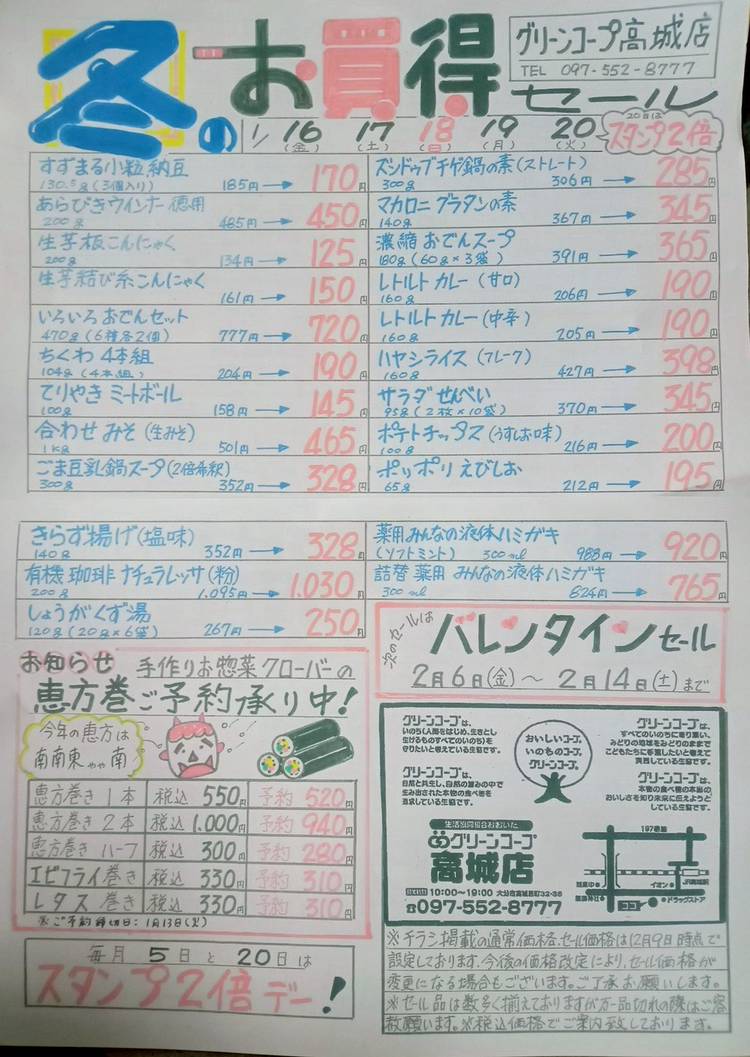 冬のお買得セール
グリーンコープ高城店
TEL 097-552-8777
1/16(金) 17(土) 18(日) 19(月) 20(火)
20日は
スタンプ2倍
すずまる小粒納豆
130.5g(3個入り) 185円→170円
あらびきウインナー徳用
200g 485円→450円
生芋板こんにゃく
200g 134円→125円
生芋結び糸こんにゃく
161円→150円
いろいろおでんセット
470g(6種各2個) 777円→720円
ちくわ4本組
104g(4本組) 204円→190円
てりやきミートボール
100g 158円→145円
合わせみそ(生みそ)
1kg 501円→465円
ごま豆乳鍋スープ(2倍希釈)
300g 352円→328円
スンドゥブチゲ鍋の素(ストレート)
300g 306円→285円
マカロニグラタンの素
140g 367円→345円
濃縮おでんスープ
180g(60g×3袋) 391円→365円
レトルトカレー(甘口)
160g 206円→190円
レトルトカレー(中辛)
160g 205円→190円
ハヤシライス(フレーク)
160g 427円→398円
サラダせんべい
95g(2枚×10袋) 370円→345円
ポテトチップス(うすしお味)
100g 216円→200円
ポリポリえびしお
65g 212円→195円
きらず揚げ(塩味)
140g 352円→328円
有機珈琲ナチュラレッサ(粉)
200g 1.095円→1.030円
しょうがくず湯
120g(20g×6袋) 267円→250円
薬用みんなの液体ハミガキ
(ソフトミント) 300ml 988円→920円
詰替薬用みんなの液体ハミガキ
300ml 824円→765円
次のセールは
バレンタインセール
2月6日(金)〜2月14日(土)まで
お知らせ 手作りお惣菜クローバーの
恵方巻ご予約承り中!
今年の恵方は
南南東やや南
恵方巻き1本 税込550円 予約520円
恵方巻き2本 税込1.000円 予約940円
恵方巻きハーフ 税込300円 予約280円
エビフライ巻き 税込330円 予約310円
レタス巻き 税込330円 予約310円
※ご予約締切日:1月13日(火)
毎月5日と20日は
スタンプ2倍デー!
グリーンコープは、
いのち(人間をはじめ、生きとし
生けるものすべてのいのち)を
守りたいと考えている生協です。
グリーンコープは、
自然と共生し、自然の営みの中で
生み出された本物の食べ物を
追求している生協です。
おいしいコープ。
いのちのコープ。
グリーンコープ。
グリーンコープは、
すべてのいのちに寄り添い、
みどりの地球をみどりのままで
こどもたちに手渡したいと考えて
実践している生協です。
グリーンコープは、
本物の食べ物の本当の
おいしさを知り未来に伝えようと
している生協です。
生活協同組合おおいた
グリーンコープ
高城店
10:00〜19:00 大分市高城新町32-36
☎097-552-8777
197号線
イオン
JR高城駅
ココ
ドラッグストア
※チラシ掲載の通常価格、セール価格は12月9日時点で
設定しております。今後の価格改定により、セール価格が
変更になる場合もございます。ご了承お願いします。
※セール品は数多く揃えておりますが万一品切れの際はご容
赦願います。※税込価格でご案内致しております。